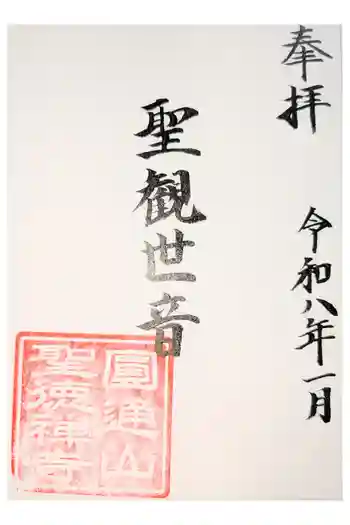 奉拝
令和八年一月
聖観世音
圓通山
聖徳禅寺